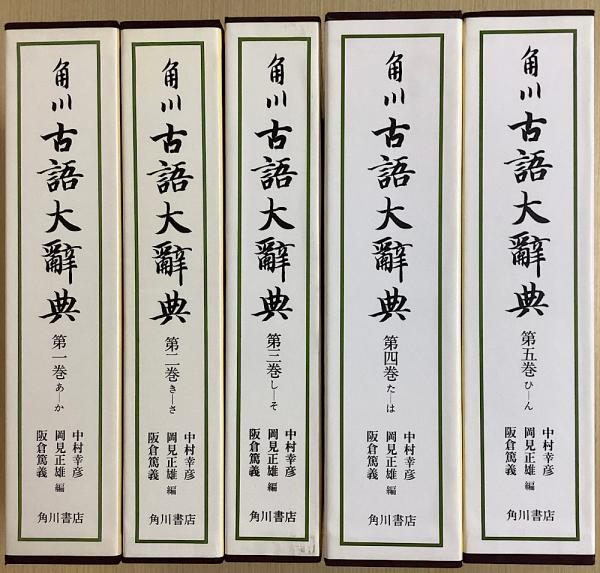 角川
古語大辭典
第一巻
あ―か
中村幸彦
岡見正雄 編
阪倉篤義
角川書店
角川
古語大辭典
第二巻
き―さ
中村幸彦
岡見正雄 編
阪倉篤義
角川書店
角川
古語大辭典
第三巻
し―そ
中村幸彦
岡見正雄 編
阪倉篤義
角川書店
角川
古語大辭典
第四巻
た―は
中村幸彦
岡見正雄 編
阪倉篤義
角川書店
角川
古語大辭典
第五巻
ひ―ん
中村幸彦
岡見正雄 編
阪倉篤義
角川書店